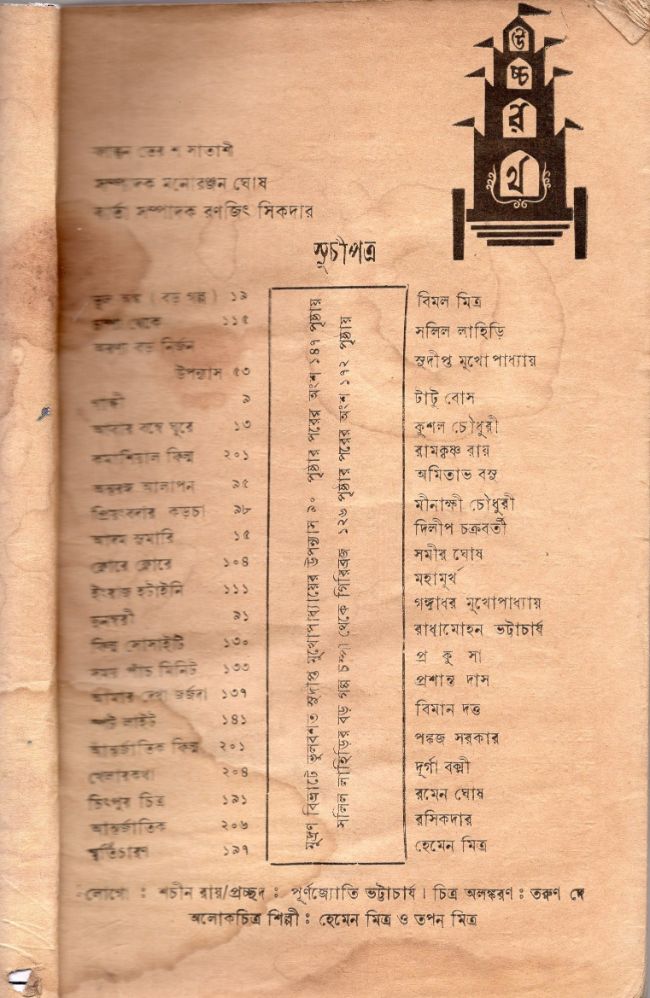 উচ্চ
র
র্থ
ফাল্গুন তের শ সাতাশী
সম্পাদক মনোরঞ্জন ঘোষ
বার্তা সম্পাদক রণজিৎ সিকদার
সূচীপত্র
ভুল অঙ্ক ( বড় গল্প ) ১৯ বিমল মিত্র
চম্পা থেকে ১১৫ সলিল লাহিড়ি
অরণ্য বড় নির্জন
উপন্যাস ৫৩ সুদীপ্ত মুখোপাধ্যায়
৯ টাটু বোস
আবার বম্বে ঘুরে ১৩ কুশল চৌধুরী
কমাশিয়াল ফিল্ম ২০১ রামকৃষ্ণ রায়
অন্তরঙ্গ আলাপন ৯৫ অমিতাভ বসু
প্রিয়ংবদার কড়চা ৯৮ মীনাক্ষী চৌধুরী
আদম সুমারি ১৫ দিলীপ চক্রবর্তী
ফ্লোরে ফ্লোরে ১০৪ সমীর ঘোষ
ইংরাজ হটাইনি ১১১ মহামূর্খ
৯১ গঙ্গাধর মুখোপাধ্যায়
ফিল্ম সোসাইটি ১৩০ রাধামোহন ভট্টাচার্য
সময় পাঁচ মিনিট ১৩৩ প্র কু সা
আমার দেখা জর্জদা ১৩৭ প্রশান্ত দাস
স্পট লাইট ১৪১ বিমান দত্ত
আন্তর্জাতিক ফিল্ম ২০১ পঙ্কজ সরকার
খেলারকথা ২০৪ দূর্গা বক্সী
চিৎপুর চিত্র ১৯১ রমেন ঘোষ
আন্তর্জাতিক ২০৬ রসিকদার
স্মৃতিচারণ ১৯৭ হেমেন মিত্র
মুদ্রণ বিভ্রাটে ভুলবশত সুদীপ্ত মুখোপাধ্যায়ের উপন্যাস ৯০ পৃষ্ঠার পরের অংশ ১৪৭ পৃষ্ঠায়
সলিল লাহিড়ির বড় গল্প চম্পা থেকে গিরিব্রজ ১২৬ পৃষ্ঠার পরের অংশ ১৭২ পৃষ্ঠায়
লোগো : শচীন রায়/প্রচ্ছদ : পূর্ণজ্যোতি ভট্টাচার্য । চিত্র অলঙ্করণ : তরুণ দে
অলোকচিত্র শিল্পী : হেমেন মিত্র ও তপন মিত্র